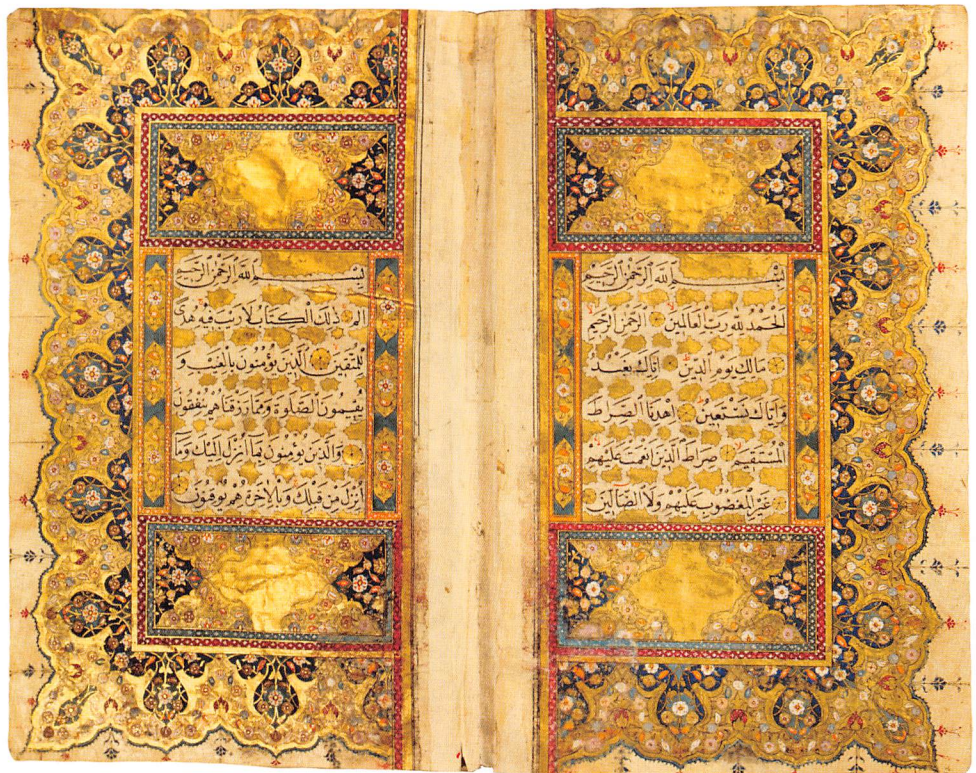 بِسْمِ اللهِ الرَّحْمٰنِ الرَّحِيمِ
الْحَمْدُ لِلّٰهِ رَبِّ الْعَالَمِينَ الرَّحْمٰنِ الرَّحِيمِ
مَالِكِ يَوْمِ الدِّينِ إِيَّاكَ نَعْبُدُ
وَإِيَّاكَ نَسْتَعِينُ اهْدِنَا الصِّرَاطَ
الْمُسْتَقِيمَ صِرَاطَ الَّذِينَ أَنْعَمْتَ عَلَيْهِمْ
غَيْرِ الْمَغْضُوبِ عَلَيْهِمْ وَلَا الضَّالِّينَ
بِسْمِ اللهِ الرَّحْمٰنِ الرَّحِيمِ
الم ذٰلِكَ الْكِتَابُ لَا رَيْبَ فِيهِ هُدًى
لِلْمُتَّقِينَ الَّذِينَ يُؤْمِنُونَ بِالْغَيْبِ وَ
يُقِيمُونَ الصَّلٰوةَ وَمِمَّا رَزَقْنَاهُمْ يُنْفِقُونَ
وَالَّذِينَ يُؤْمِنُونَ بِمَا أُنْزِلَ إِلَيْكَ وَمَا
أُنْزِلَ مِنْ قَبْلِكَ وَبِالْاٰخِرَةِ هُمْ يُوقِنُونَ